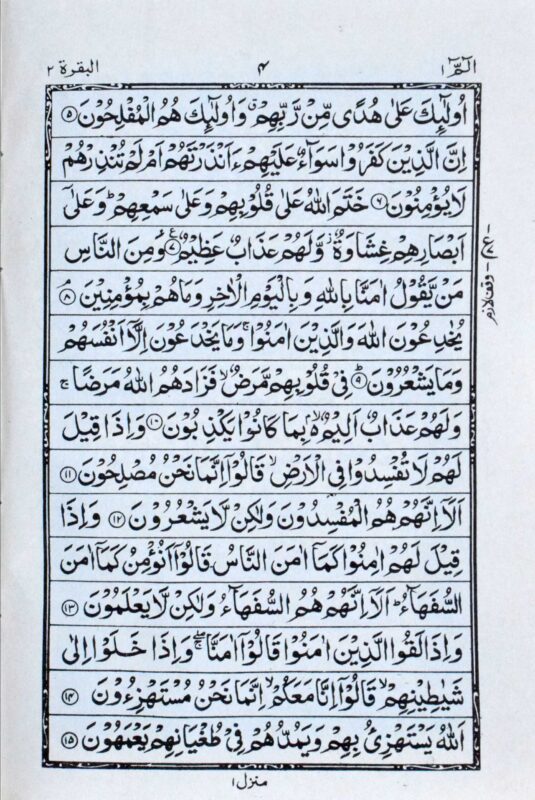 الٓمّٓ ١ ۴ البقرة ٢
اُولٰٓئِكَ عَلٰى هُدًى مِّنْ رَّبِّهِمْ ۗ وَاُولٰٓئِكَ هُمُ الْمُفْلِحُوْنَ ﴿۵﴾
اِنَّ الَّذِيْنَ كَفَرُوْا سَوَآءٌ عَلَيْهِمْ ءَاَنْذَرْتَهُمْ اَمْ لَمْ تُنْذِرْهُمْ
لَا يُؤْمِنُوْنَ ﴿۶﴾ خَتَمَ اللّٰهُ عَلٰى قُلُوْبِهِمْ وَعَلٰى سَمْعِهِمْ ؕ وَعَلٰٓى
اَبْصَارِهِمْ غِشَاوَةٌ ز وَّلَهُمْ عَذَابٌ عَظِيْمٌ ﴿۷﴾ ع وَمِنَ النَّاسِ
مَنْ يَّقُوْلُ اٰمَنَّا بِاللّٰهِ وَبِالْيَوْمِ الْاٰخِرِ وَمَا هُمْ بِمُؤْمِنِيْنَ ۘ ﴿۸﴾
يُخٰدِعُوْنَ اللّٰهَ وَالَّذِيْنَ اٰمَنُوْا ۚ وَمَا يَخْدَعُوْنَ اِلَّآ اَنْفُسَهُمْ
وَمَا يَشْعُرُوْنَ ﴿۹﴾ فِىْ قُلُوْبِهِمْ مَّرَضٌ ۙ فَزَادَهُمُ اللّٰهُ مَرَضًا ۚ
وَلَهُمْ عَذَابٌ اَلِيْمٌۢ ۙ بِمَا كَانُوْا يَكْذِبُوْنَ ﴿۱۰﴾ وَاِذَا قِيْلَ
لَهُمْ لَا تُفْسِدُوْا فِى الْاَرْضِ ۙ قَالُوْٓا اِنَّمَا نَحْنُ مُصْلِحُوْنَ ﴿۱۱﴾
اَلَآ اِنَّهُمْ هُمُ الْمُفْسِدُوْنَ وَلٰكِنْ لَّا يَشْعُرُوْنَ ﴿۱۲﴾ وَاِذَا
قِيْلَ لَهُمْ اٰمِنُوْا كَمَآ اٰمَنَ النَّاسُ قَالُوْٓا اَنُؤْمِنُ كَمَآ اٰمَنَ
السُّفَهَآءُ ؕ اَلَآ اِنَّهُمْ هُمُ السُّفَهَآءُ وَلٰكِنْ لَّا يَعْلَمُوْنَ ﴿۱۳﴾
وَاِذَا لَقُوا الَّذِيْنَ اٰمَنُوْا قَالُوْٓا اٰمَنَّا ۖۚ وَاِذَا خَلَوْا اِلٰى
شَيٰطِيْنِهِمْ ۙ قَالُوْٓا اِنَّا مَعَكُمْ ۙ اِنَّمَا نَحْنُ مُسْتَهْزِءُوْنَ ﴿۱۴﴾
اَللّٰهُ يَسْتَهْزِئُ بِهِمْ وَيَمُدُّهُمْ فِىْ طُغْيَانِهِمْ يَعْمَهُوْنَ ﴿۱۵﴾
وقف لازم
منزل ۱